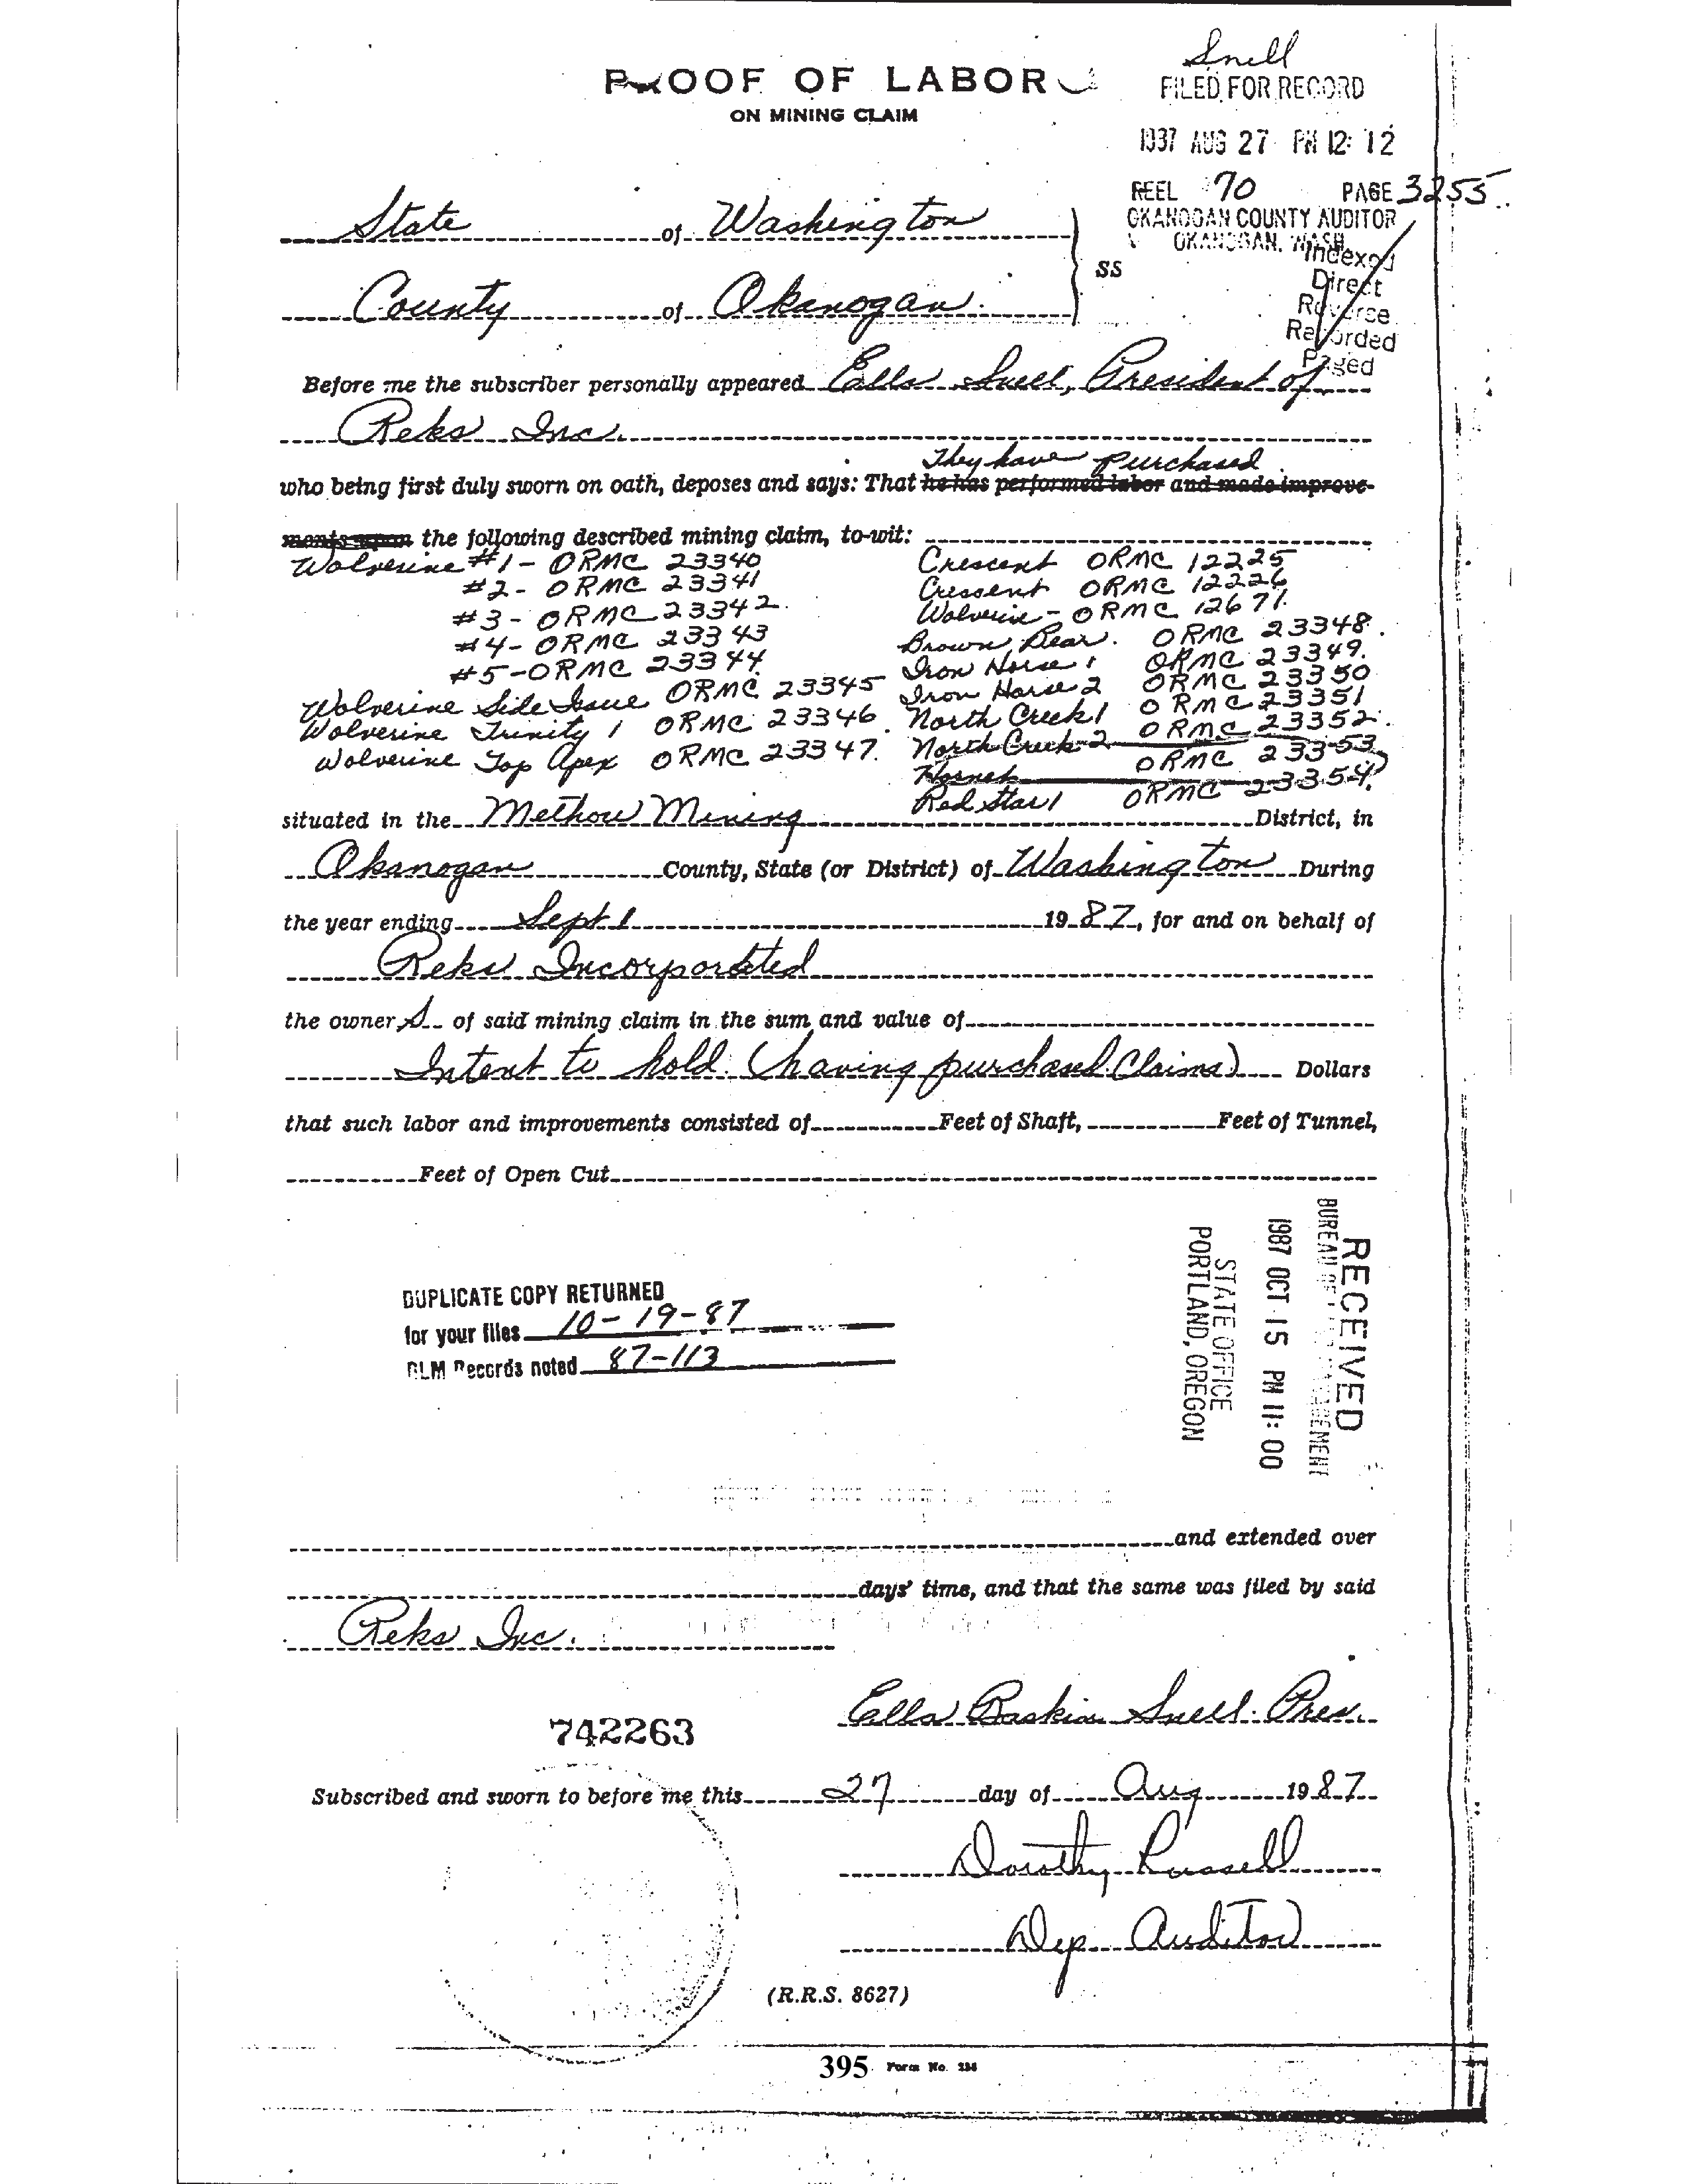 Snell
PROOF OF LABOR
ON MINING CLAIM
FILED FOR RECORD
1987 AUG 27 PM 12:12
REEL 70 PAGE 3255
OKANOGAN COUNTY AUDITOR
OKANOGAN, WASH.
Indexed
Direct
Reverse
Recorded
Paged
State of Washington
SS
County of Okanogan
Before me the subscriber personally appeared Ella Snell, President of
Reks Inc.
They have purchased
who being first duly sworn on oath, deposes and says: That he has performed labor and made improve-
ments upon the following described mining claim, to-wit:
Wolverine #1 - ORMC 23340
#2 - ORMC 23341
#3 - ORMC 23342
#4 - ORMC 23343
#5 - ORMC 23344
Wolverine Side Issue ORMC 23345
Wolverine Trinity 1 ORMC 23346
Wolverine Top Apex ORMC 23347.
Crescent ORMC 12225
Cressent ORMC 12226
Wolverine - ORMC 12671.
Brown Bear. ORMC 23348.
Iron Horse 1 ORMC 23349.
Iron Horse 2 ORMC 23350
North Creek 1 ORMC 23351
North Creek 2 ORMC 23352.
Hornet ORMC 23353
Red Star 1 ORMC 23354
situated in the Methow Mining District, in
Okanogan County, State (or District) of Washington During
the year ending Sept 1 1987, for and on behalf of
Reks Incorporated
the owner s of said mining claim in the sum and value of
Intent to hold (having purchased Claims) Dollars
that such labor and improvements consisted of Feet of Shaft, Feet of Tunnel,
Feet of Open Cut
RECEIVED
BUREAU OF LAND MANAGEMENT
1987 OCT 15 PM 11:00
STATE OFFICE
PORTLAND, OREGON
DUPLICATE COPY RETURNED
for your files 10-19-87
BLM Records noted 87-113
and extended over
days' time, and that the same was filed by said
Reks Inc.
Ella Baskin Snell. Pres.
742263
Subscribed and sworn to before me this 27 day of Aug 1987
Dorothy Russell
Dep. Auditor
(R.R.S. 8627)
395 Form No.